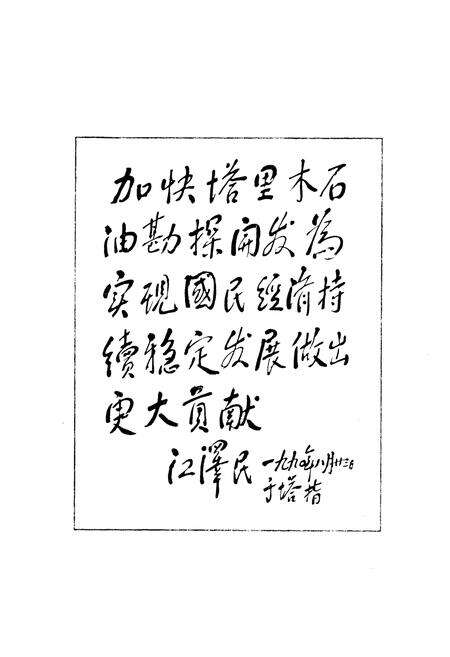 加快塔里木石
油勘探开发為
实現國民經濟持
續稳定发展做出
更大貢献
江澤民 一九九〇年八月廿三日
于塔指